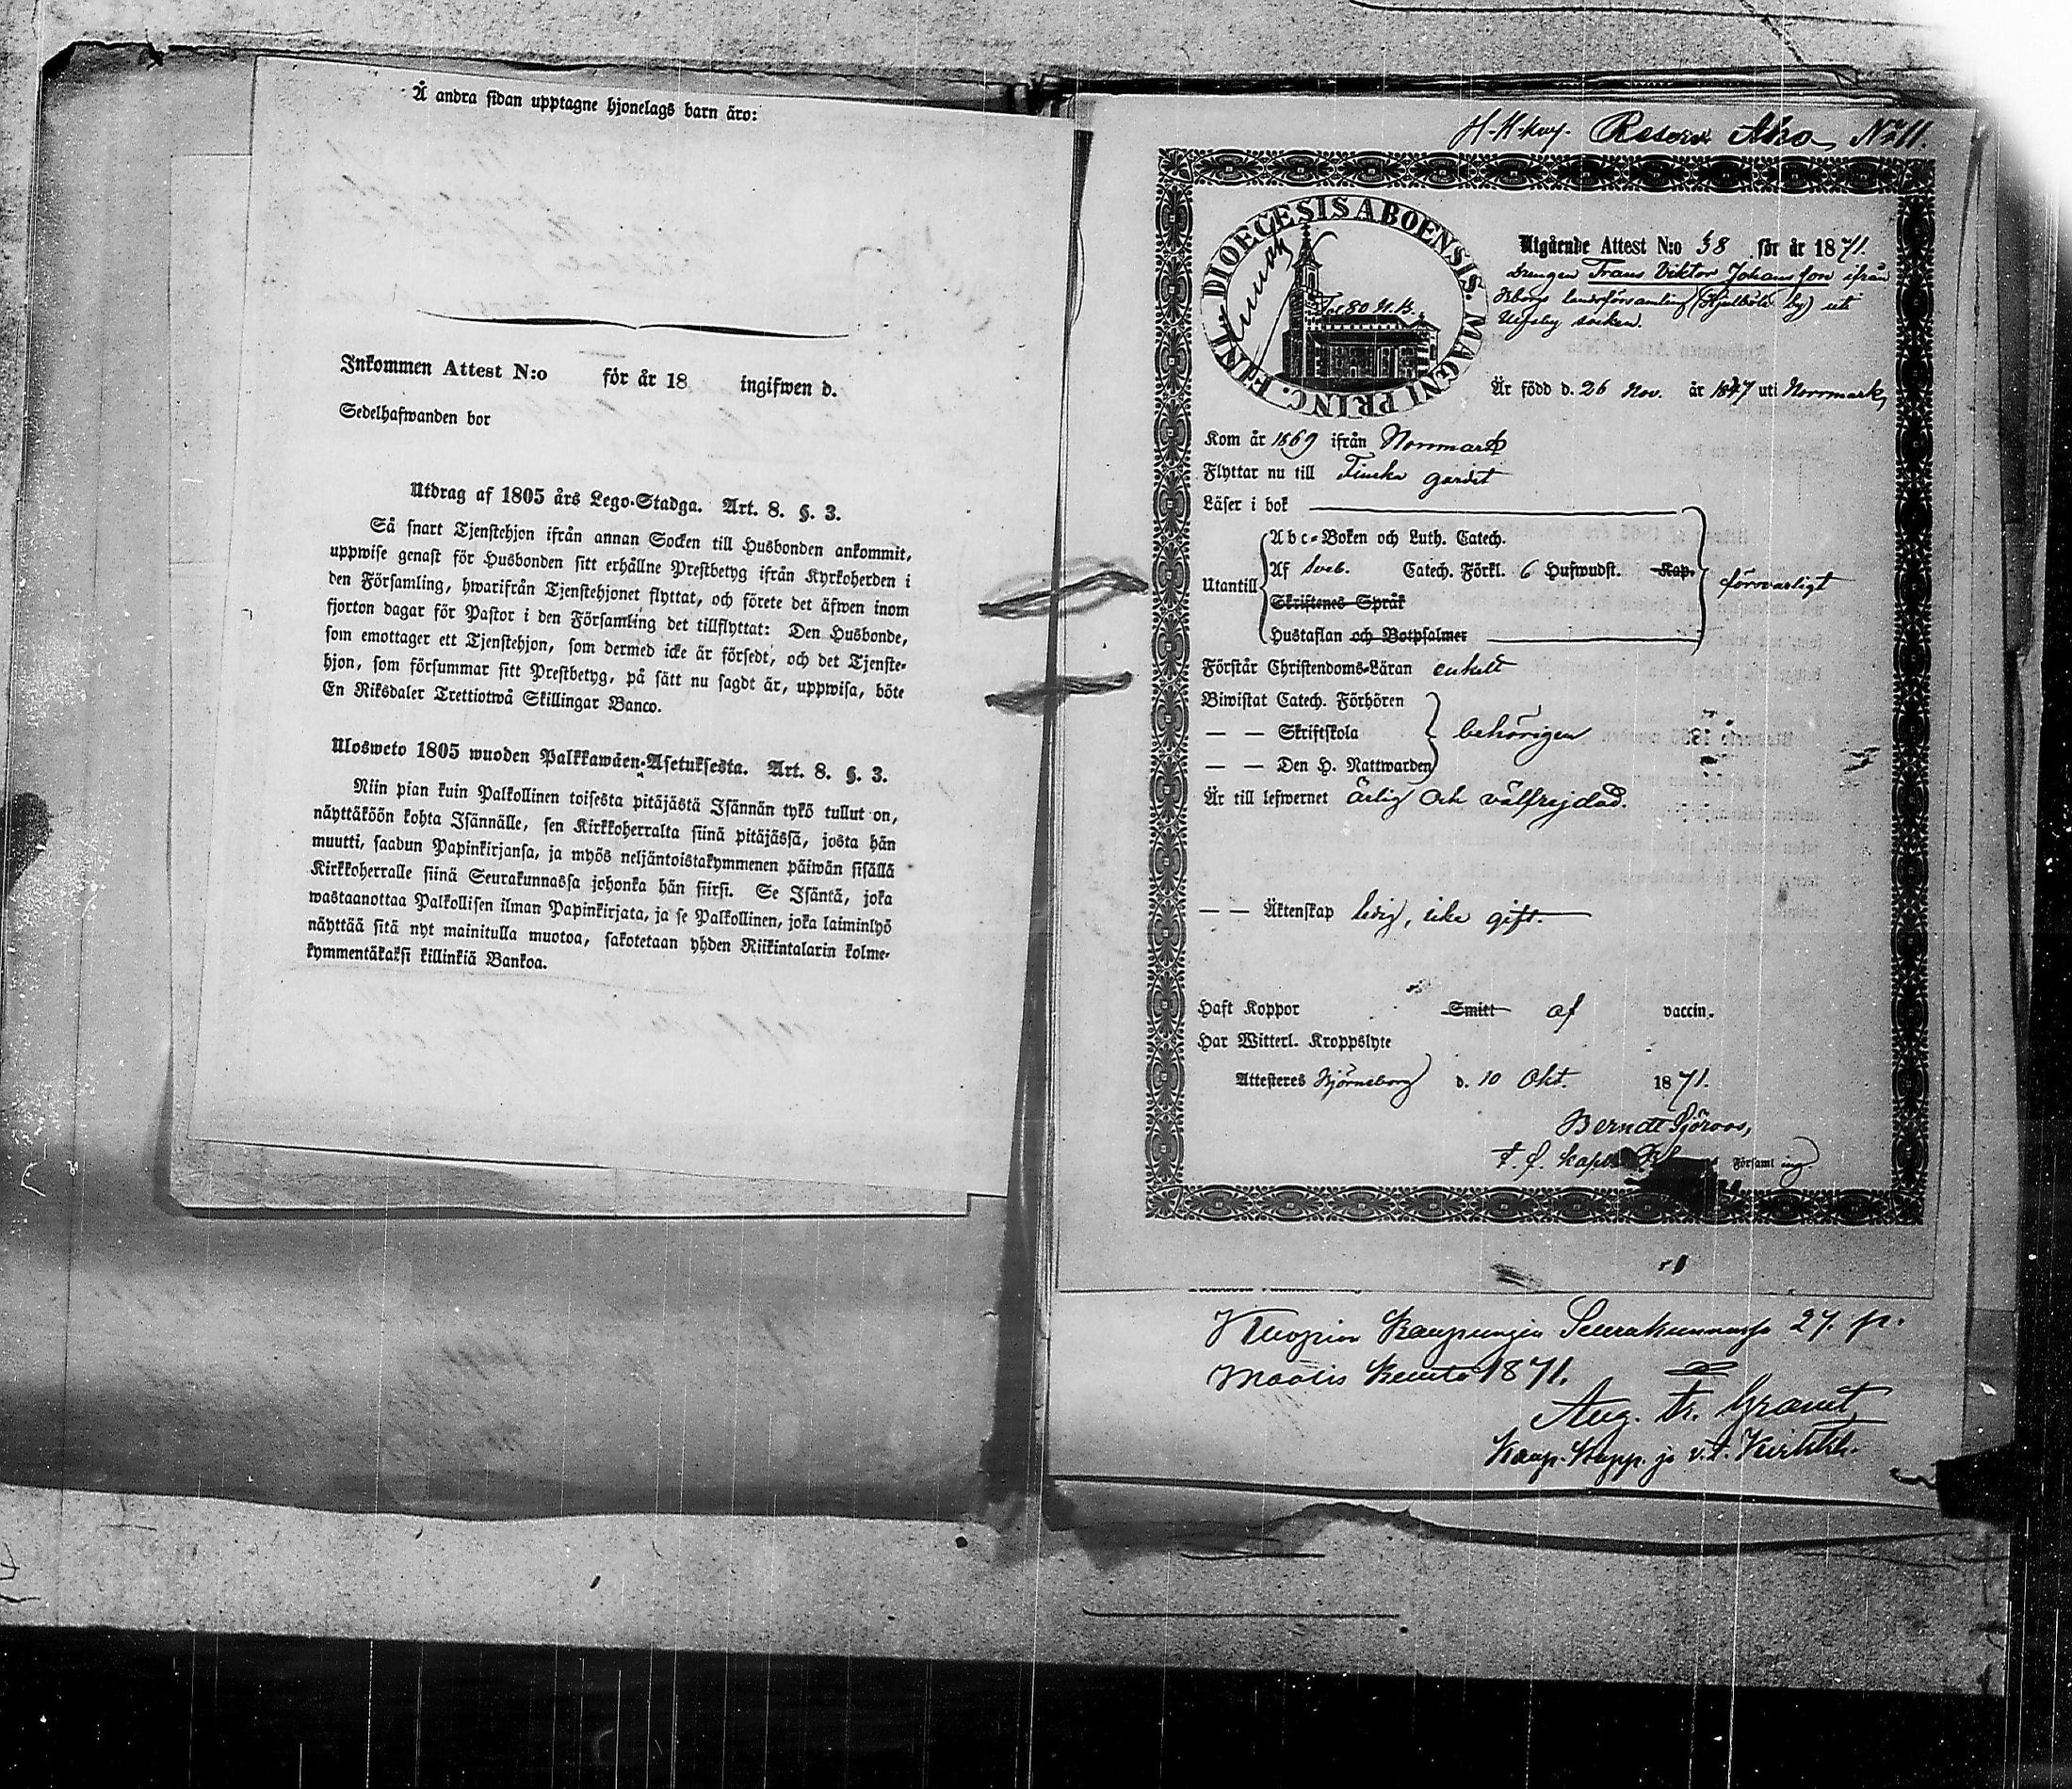 Å andra sidan upptagne hjonelags barn äro:
Inkommen Attest N:o för år 18 ingifwen d.
Sedelhafwanden bor
Utdrag af 1805 års Lego-Stadga. Art. 8. §. 3.
Så snart Tjenstehjon ifrån annan Socken till Husbonden ankommit,
uppwise genast för Husbonden sitt erhållne Prestbetyg ifrån Kyrkoherden i
den Församling, hwarifrån Tjenstehjonet flyttat, och förete det äfwen inom
fjorton dagar för Pastor i den Församling det tillflyttat: Den Husbonde,
som emottager ett Tjenstehjon, som dermed icke är försedt, och det Tjenste-
hjon, som försummar sitt Prestbetyg, på sätt nu sagdt är, uppwisa, böte
En Riksdaler Trettiotwå Skillingar Banco.
Ulosweto 1805 wuoden Palkkawäen-Asetuksesta. Art. 8. §. 3.
Niin pian kuin Palkollinen toisesta pitäjästä Isännän tykö tullut on,
näyttäköön kohta Isännälle, sen Kirkkoherralta siinä pitäjässä, josta hän
muutti, saadun Papinkirjansa, ja myös neljäntoistakymmenen päiwän sisällä
Kirkkoherralle siinä Seurakunnassa johonka hän siirsi. Se Isäntä, joka
wastaanottaa Palkollisen ilman Papinkirjata, ja se Palkollinen, joka laiminlyö
näyttää sitä nyt mainitulla muotoa, sakotetaan yhden Riikintalarin kolme-
kymmentäkaksi killinkiä Bankoa.
Reserv Aho N:o 11.
DIOECESIS ABOENSIS. MAGNI PRINC. FINL.
Utgående Attest N:o 38 för år 1871.
Drengen Frans Viktor Johansson ifrån
Bborgs landsförsamling (Hjulböle by) uti
Ulfsby socken.
Är född d. 26 Nov. år 1847 uti Norrmark,
Kom år 1869 ifrån Norrmark
Flyttar nu till Finska gardet
Läser i bok
Abc-Boken och Luth. Catech.
Utantill Af Sveb. Catech. Förkl. 6 Hufwudst. Kap. försvarligt
Skriftenes Språk
Hustaflan och Botpsalmer
Förstår Christendoms-Läran enkelt
Biwistat Catech. Förhören
— — Skriftskola behörigen
— — Den H. Nattwarden
Är till lefwernet ärlig och välfrejdad.
— — Äktenskap ledig, icke gift.
Haft Koppor Smitt af vaccin.
Har Witterl. Kroppslyte
Attesteres Björneborg d. 10 Okt. 1871.
Berndt Sjöroos,
t. f. kapl. Församl ing
Kuopion Kaupungin Seurakunnassa 27. p.
Maalis kuuta 1871.
Aug. Fr. Granit
Kaup. Kapp. ja v.t. Kirkkh.